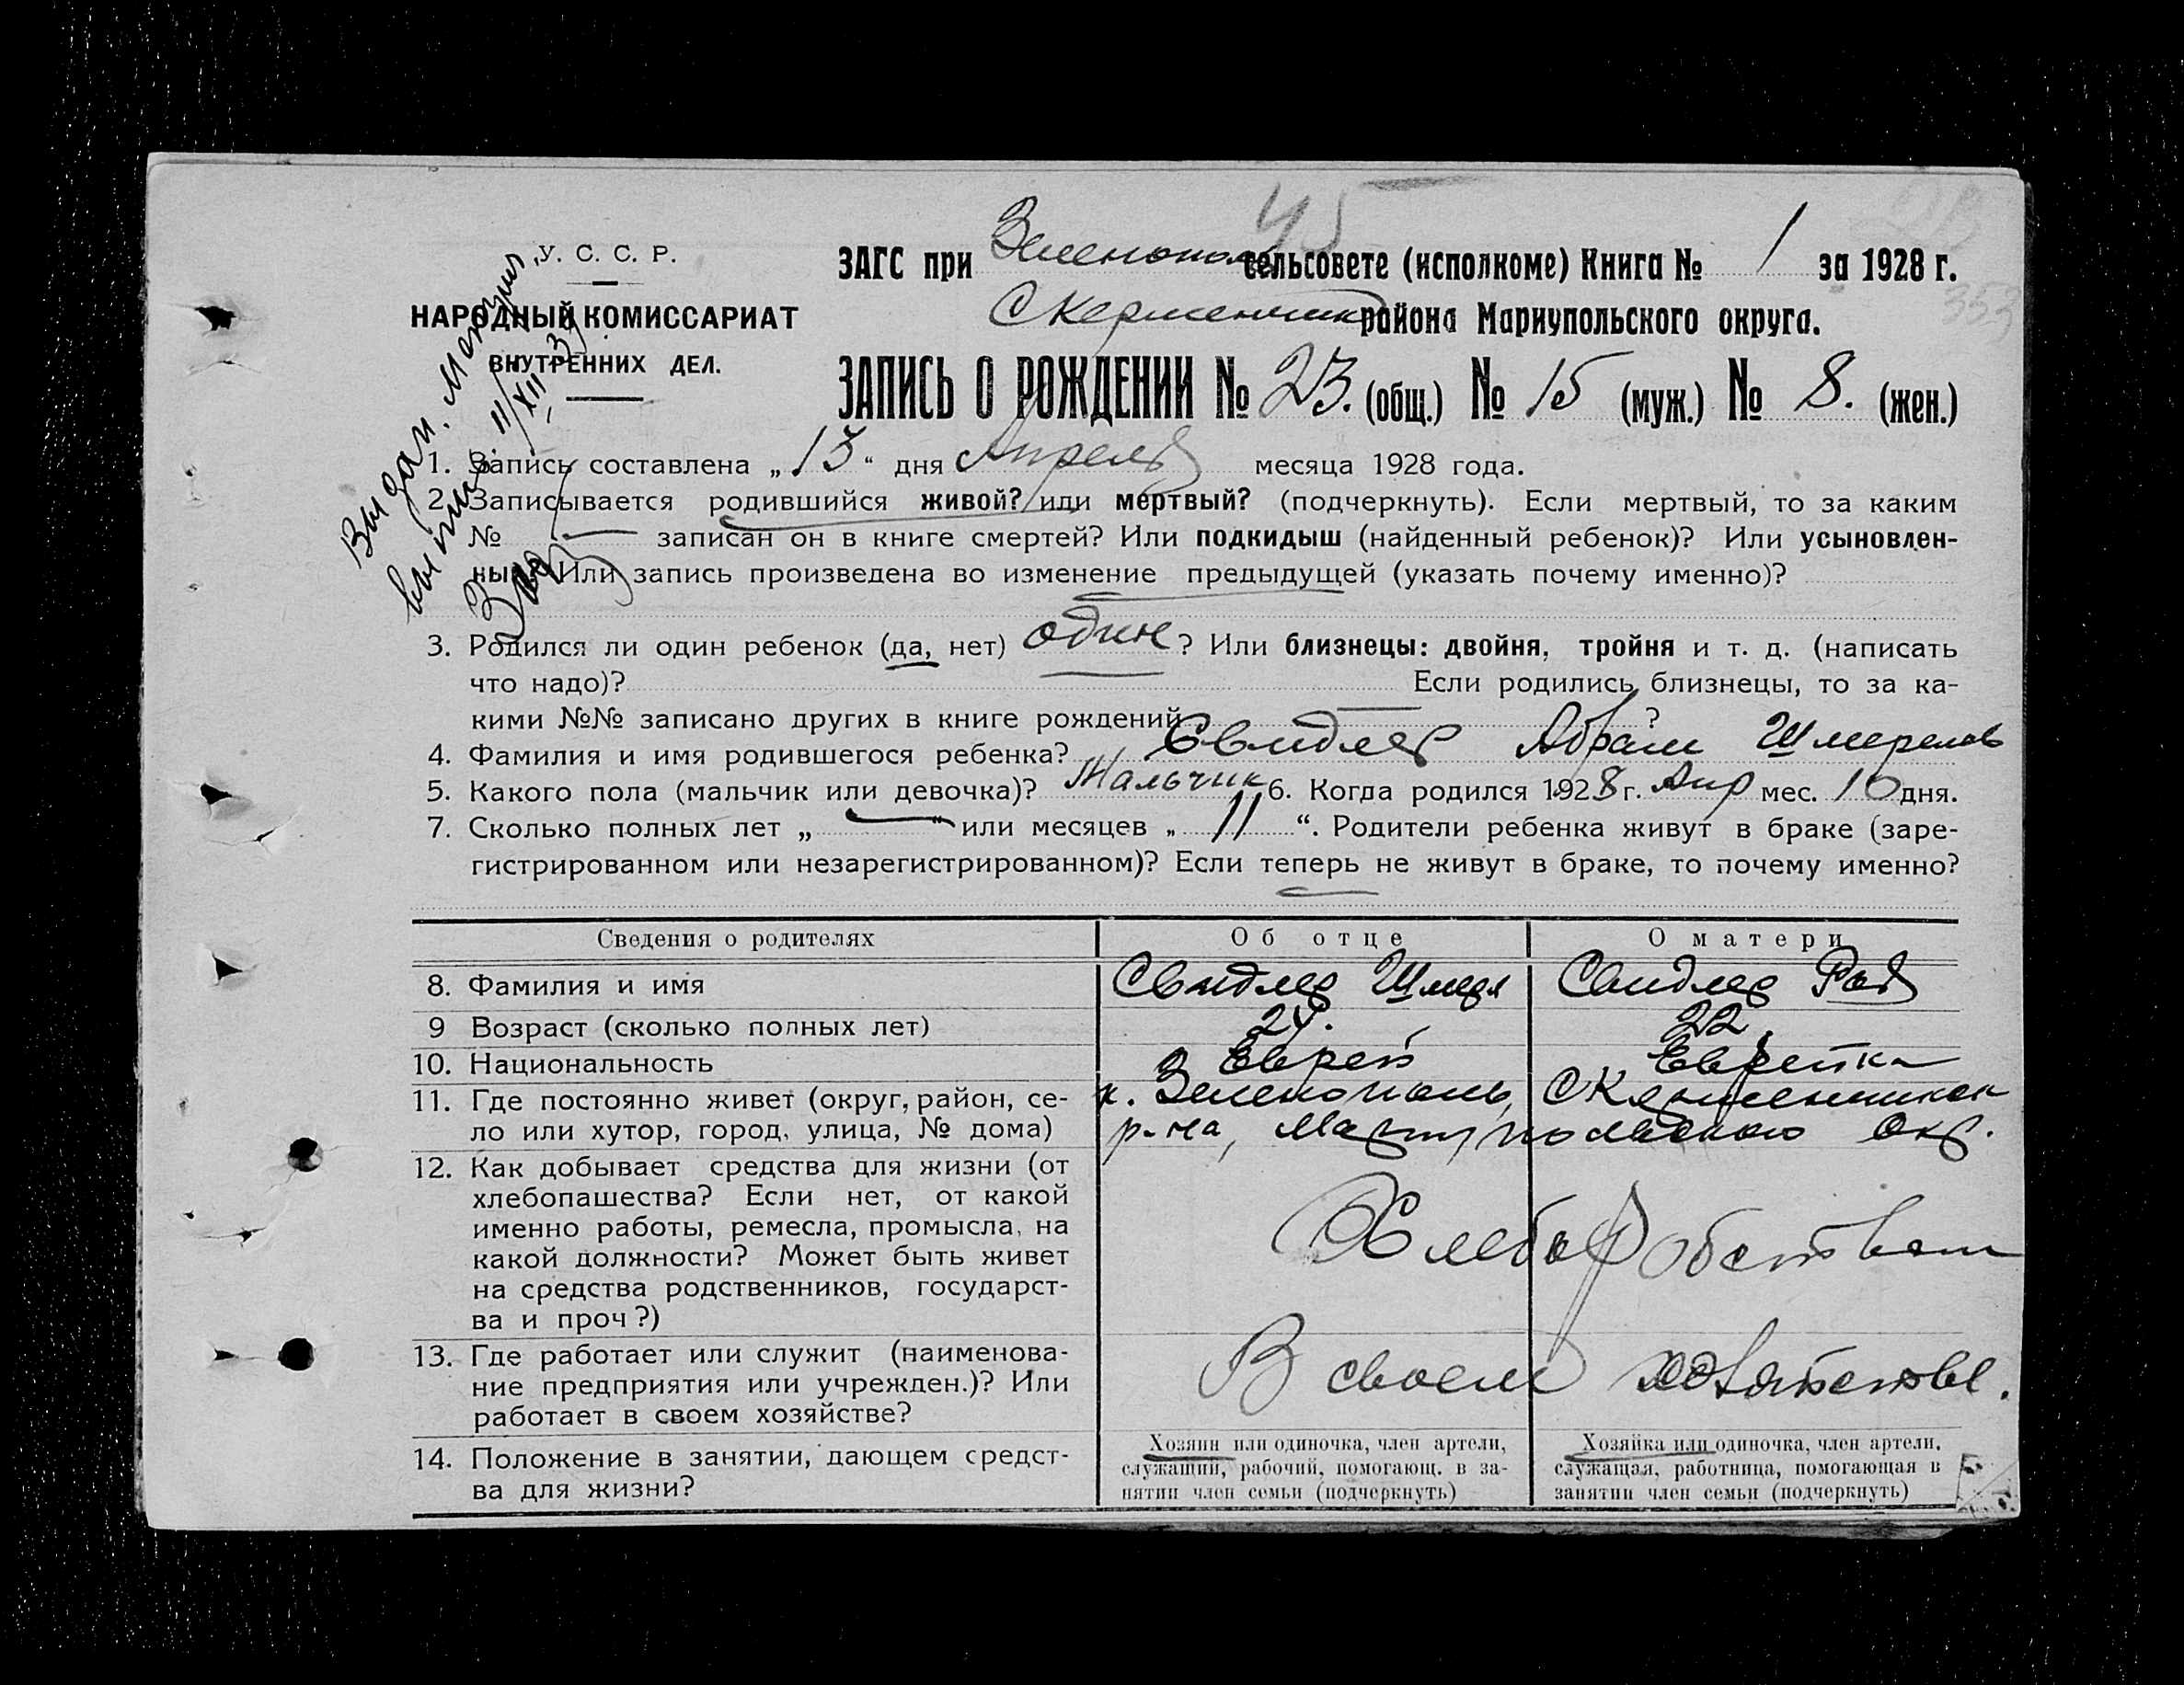 45
У. С. С. Р.
НАРОДНЫЙ КОМИССАРИАТ
ВНУТРЕННИХ ДЕЛ.
ЗАГС при Зеленополь сельсовете (исполкоме) Книга № 1 за 1928 г.
С Керменчик района Мариупольского округа.
353
ЗАПИСЬ О РОЖДЕНИИ № 23. (общ.) № 15 (муж.) № 8. (жен.)
Выдан.
11/XII
1. Запись составлена „13“ дня Апреля месяца 1928 года.
2. Записывается родившийся живой? или мертвый? (подчеркнуть). Если мертвый, то за каким
№ — записан он в книге смертей? Или подкидыш (найденный ребенок)? Или усыновлен-
ный? Или запись произведена во изменение предыдущей (указать почему именно)?
3. Родился ли один ребенок (да, нет) один? Или близнецы: двойня, тройня и т. д. (написать
что надо)? Если родились близнецы, то за ка-
кими №№ записано других в книге рождений ?
4. Фамилия и имя родившегося ребенка? Свидлер Абрам Шмерелов
5. Какого пола (мальчик или девочка)? Мальчик 6. Когда родился 1928 г. Апр мес. 10 дня.
7. Сколько полных лет „—“ или месяцев „11“. Родители ребенка живут в браке (заре-
гистрированном или незарегистрированном)? Если теперь не живут в браке, то почему именно?
Сведения о родителях Об отце О матери
8. Фамилия и имя Свидлер Шмерл Свидлер Рая
9 Возраст (сколько полных лет) 24. 22.
10. Национальность Еврей Еврейка
11. Где постоянно живет (округ, район, се- к. Зеленополь, С Керменчикск
ло или хутор, город, улица, № дома) р-на, Мариупольского Окр.
12. Как добывает средства для жизни (от
хлебопашества? Если нет, от какой
именно работы, ремесла, промысла, на
какой должности? Может быть живет
на средства родственников, государст-
ва и проч?)
Хлеборобством
13. Где работает или служит (наименова-
ние предприятия или учрежден.)? Или
работает в своем хозяйстве?
В своем хозяйстве.
14. Положение в занятии, дающем средст-
ва для жизни?
Хозяин или одиночка, член артели,
служащий, рабочий, помогающ. в за-
нятии член семьи (подчеркнуть)
Хозяйка или одиночка, член артели,
служащая, работница, помогающая в
занятии член семьи (подчеркнуть)